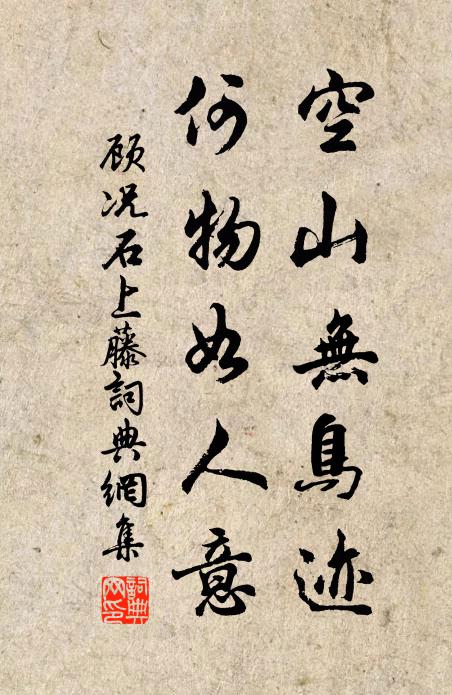 空山無鳥迹
何物如人意
顾况石上藤詞典網集
詞典网印